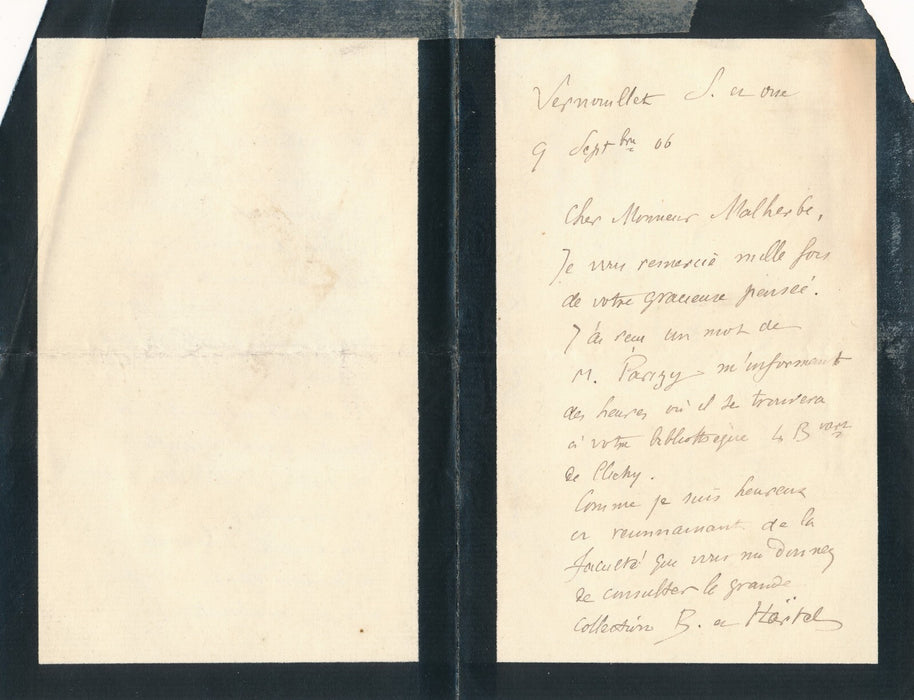 Vernouillet S. et Oise
9 Septbre 06
Cher Monsieur Malherbe,
Je vous remercie mille fois
de votre gracieuse pensée.
J'ai reçu un mot de
M. Parizy m'informant
des heures où il se trouvera
à votre bibliothèque Bvard
de Clichy.
Comme je suis heureux
et reconnaissant de la
faculté que vous me donnez
de consulter la grande
collection B. et Härtel